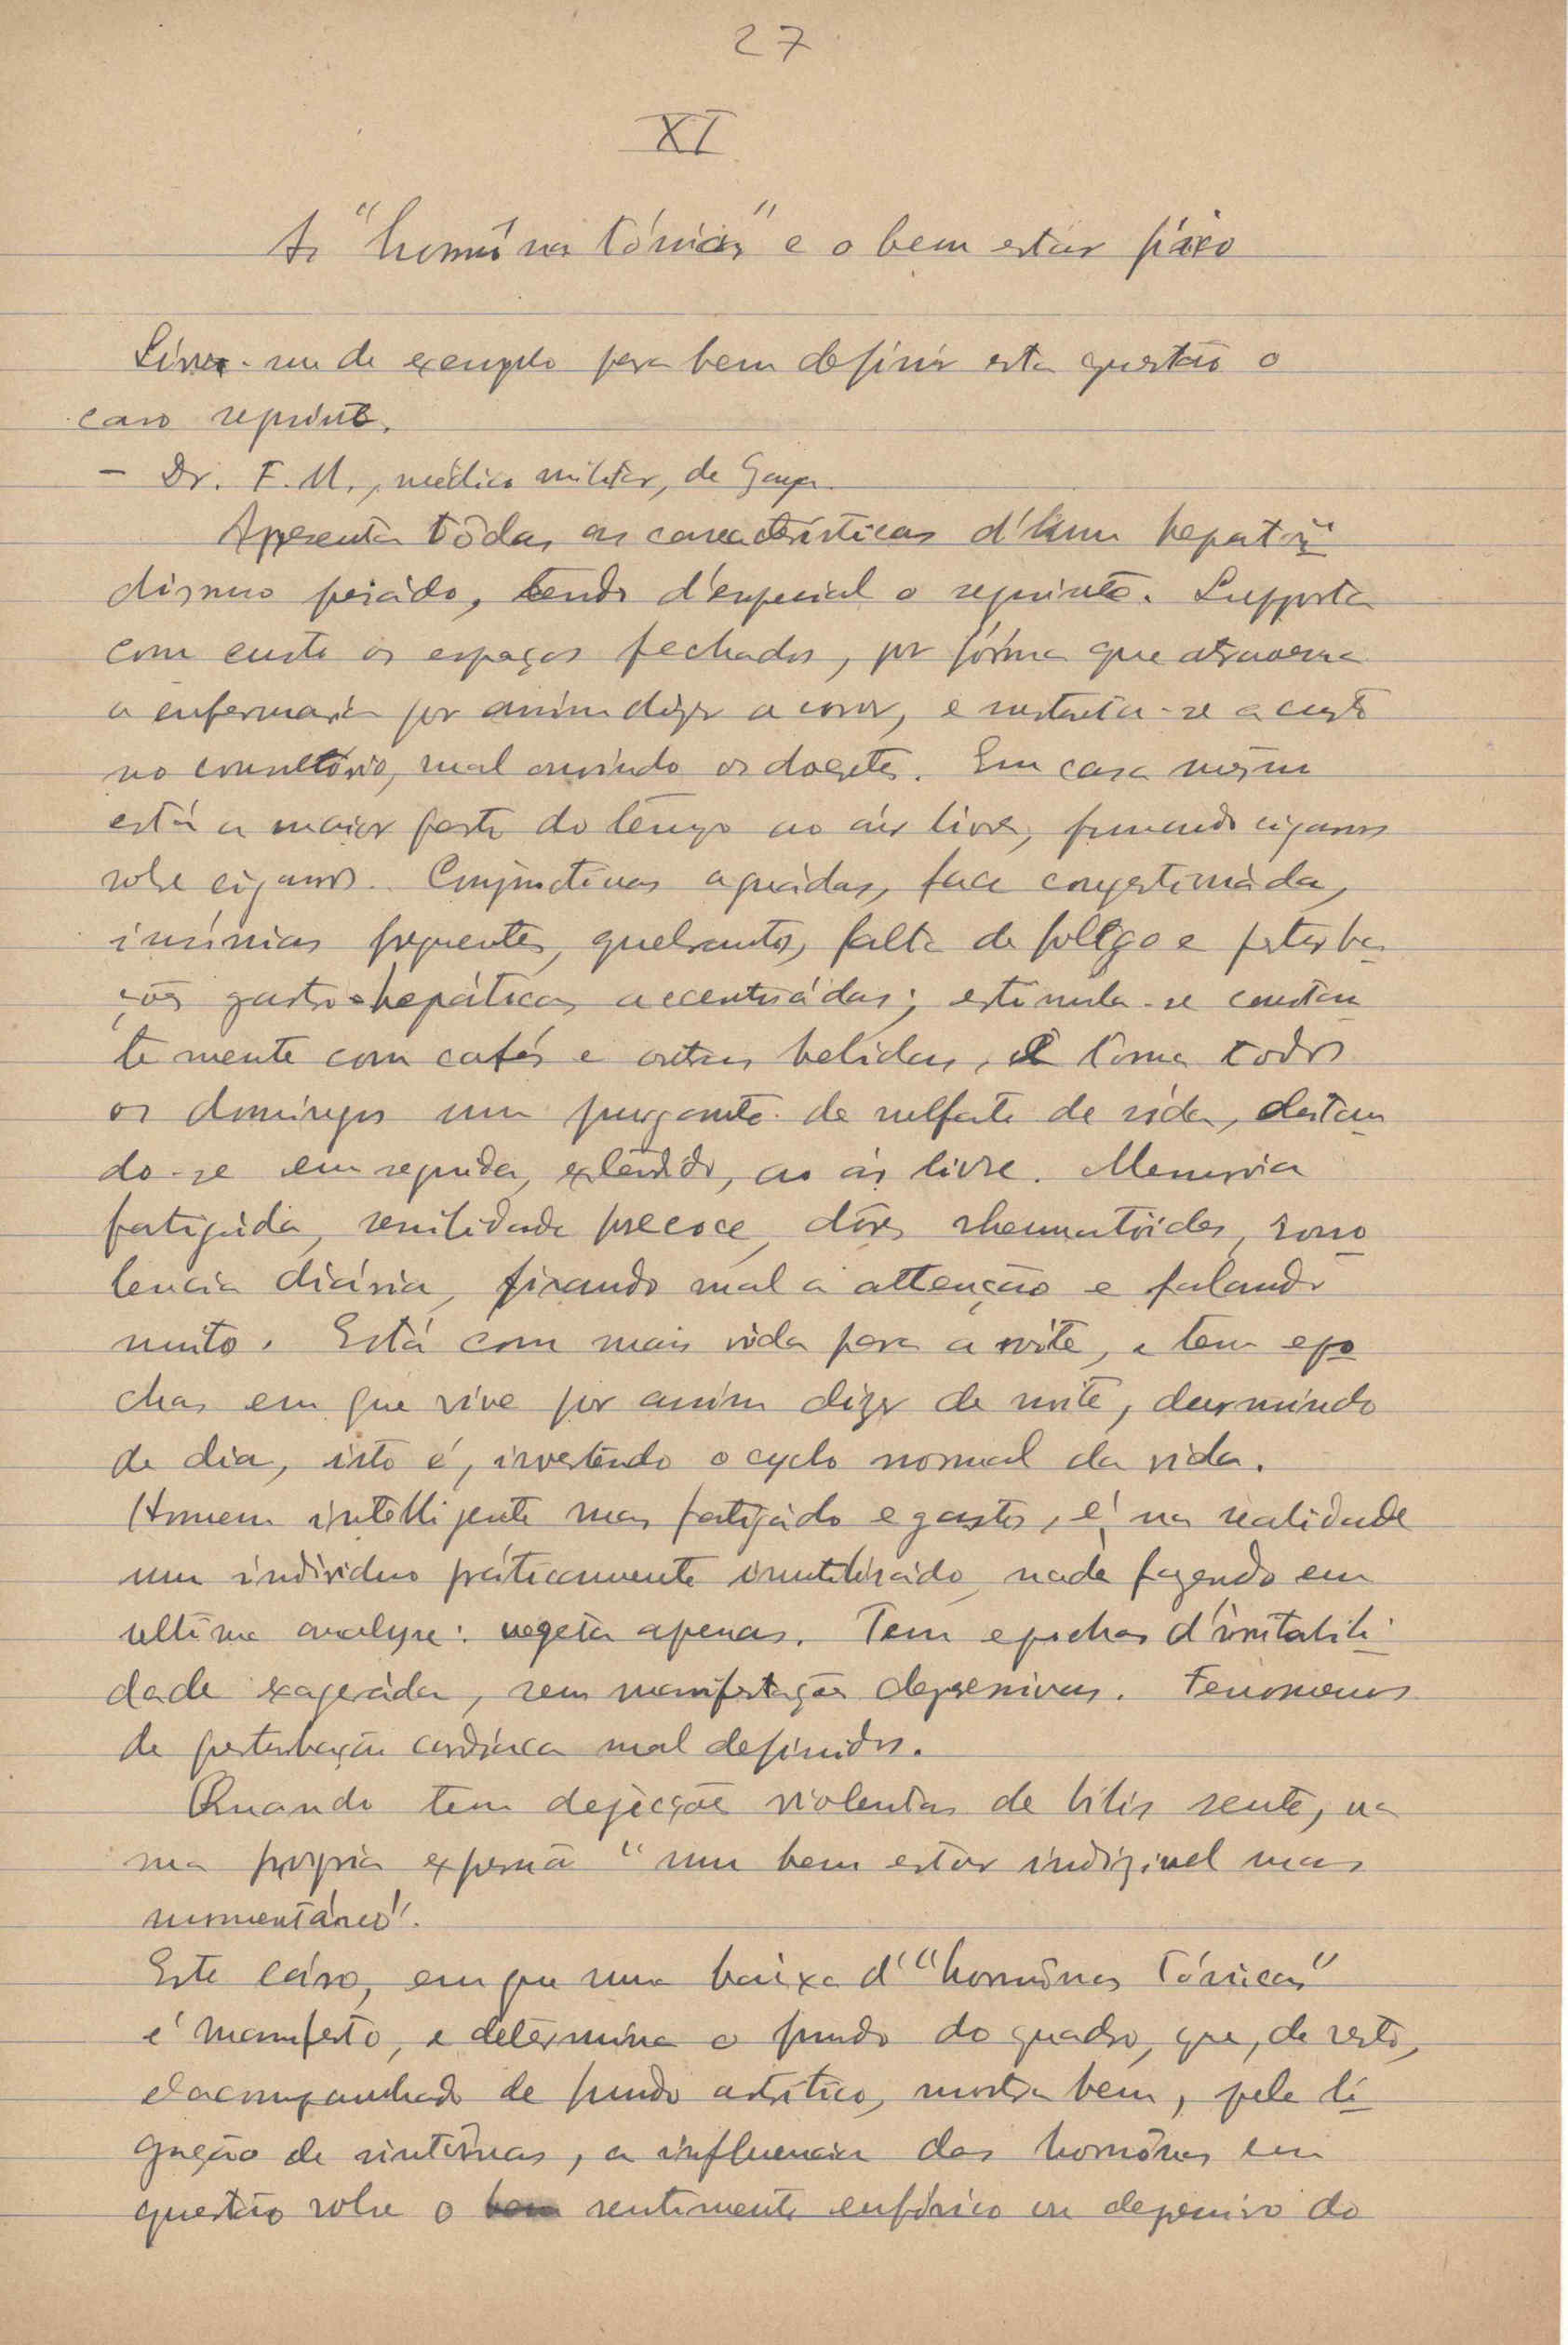 27
XI
As "hormônas tónicas" e o bem estár físico
Sirva-me de exemplo para bem definir esta questão o
caso seguinte.
- Dr. F. M., médico militar, de Gaya.
Apresenta tôdas as características d'hum hepatis
dismo pesádo, tendo d'especial o seguinte. Supporta
com custo os espaços fechados, por fórma que atravessa
a enfermaria por assim dizer a correr, e sustenta-se a custo
no consultório, mal ouvindo os doentes. Em casa mesmo
está a maior parte do tempo ao ár livre, fumando cigarros
sobre cigarros. Conjunctivas aguádas, face congestionáda,
insónias frequentes, quebrantos, falta de folego e perturba
ções gastro-hepáticas accentuádas; estimula-se constan
temente com cafés e outras bebidas, e toma todos
os domingos um purgante de sulfato de sóda, deitan
do-se em seguida, estendido, ao ár livre. Memoria
fatigáda, senilidade precoce, dôres rheumatóides, sono
lencia diária, fixando mal a attenção e falando
muito. Está com mais vida para a noite, e tem epo
chas em que vive por assim dizer de noite, durmindo
de dia, isto é, invertendo o cyclo normal da vida.
Homem intelligente mas fatigádo e gasto, é na realidade
um individuo práticamente inutilisádo, nada fazendo em
ultima analyse: vegeta apenas. Tem epochas d'irritabili
dade exageráda, sem manifestações depressivas. Fenomenos
de perturbação cardiaca mal definidos.
Quando tem dejecções violentas de bilis sente, na
sua propria expressão "um bem estar indizivel mas
momentáneo".
Este cáso, em que uma baixa d'"hormônas tónicas"
é manifesto, e determina o fundo do quadro, que, de resto,
é acompanhado de fundo artritico, mostra bem, pela li
gação de sintômas, a influencia das hormônas em
questão sobre o sentimento eufórico ou depressivo do